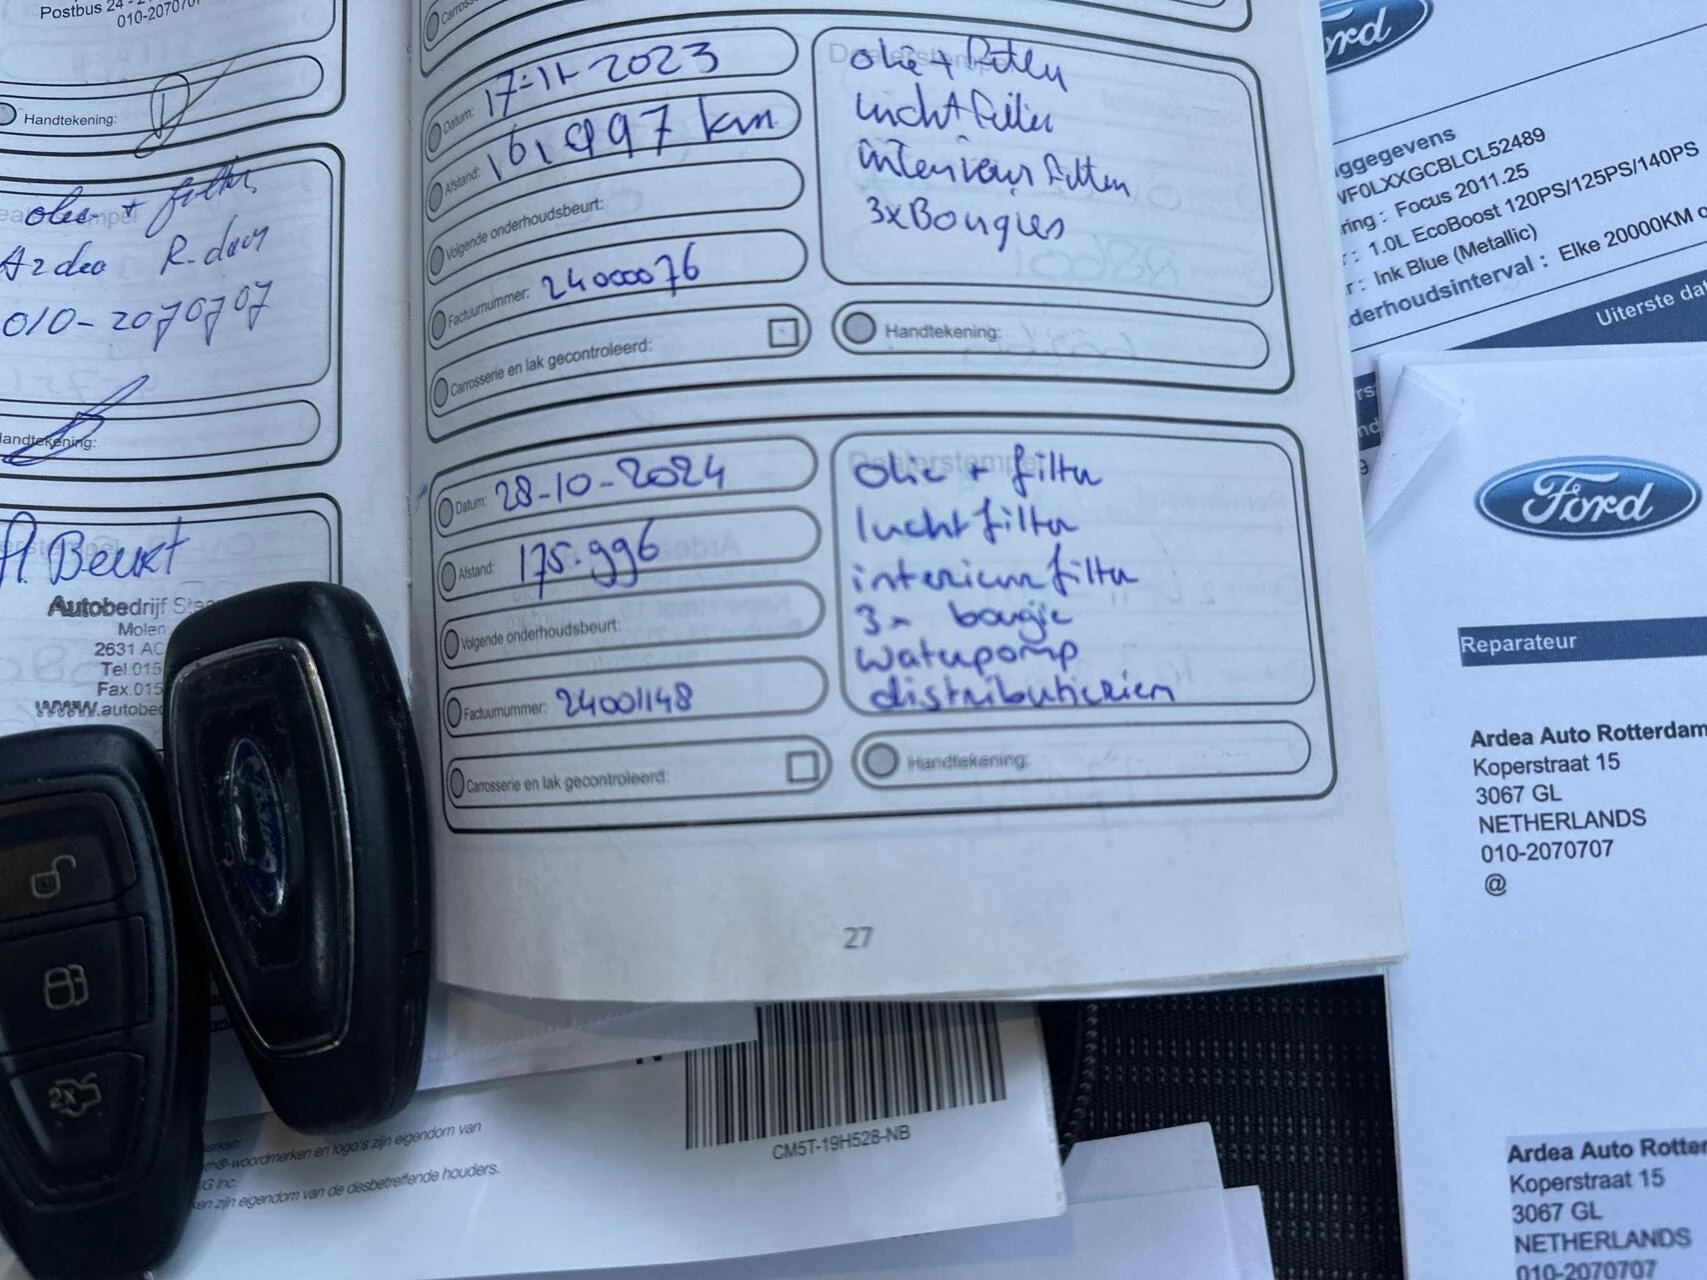 Postbus 24 -
010-2070707
Handtekening:
olie + filter
Ardea R-dam
010-2070707
Handtekening:
Beurt
Autobedrijf
Molen
2631 AC
Tel 015
Fax 015
WWW.autobed
Datum: 17-11-2023
Afstand: 161.997 km
Volgende onderhoudsbeurt:
Factuurnummer: 24000076
Carrosserie en lak gecontroleerd:
Dealerstempel
olie + filter
luchtfilter
interieurfilter
3xBougies
Handtekening:
Datum: 28-10-2024
Afstand: 175.996
Volgende onderhoudsbeurt:
Factuurnummer: 24001148
Carrosserie en lak gecontroleerd:
Dealerstempel
olie + filter
luchtfilter
interieurfilter
3x bougie
waterpomp
distributieriem
Handtekening:
27
CM5T-19H528-NB
merken:
th®-woordmerken en logo's zijn eigendom van
G Inc.
ken zijn eigendom van de desbetreffende houders.
Ford
ggegevens
WF0LXXGCBLCL52489
ring : Focus 2011.25
r : 1.0L EcoBoost 120PS/125PS/140PS
r : Ink Blue (Metallic)
derhoudsinterval : Elke 20000KM o
Uiterste dat
Ford
Reparateur
Ardea Auto Rotterdam
Koperstraat 15
3067 GL
NETHERLANDS
010-2070707
@
Ardea Auto Rotter
Koperstraat 15
3067 GL
NETHERLANDS
010-2070707